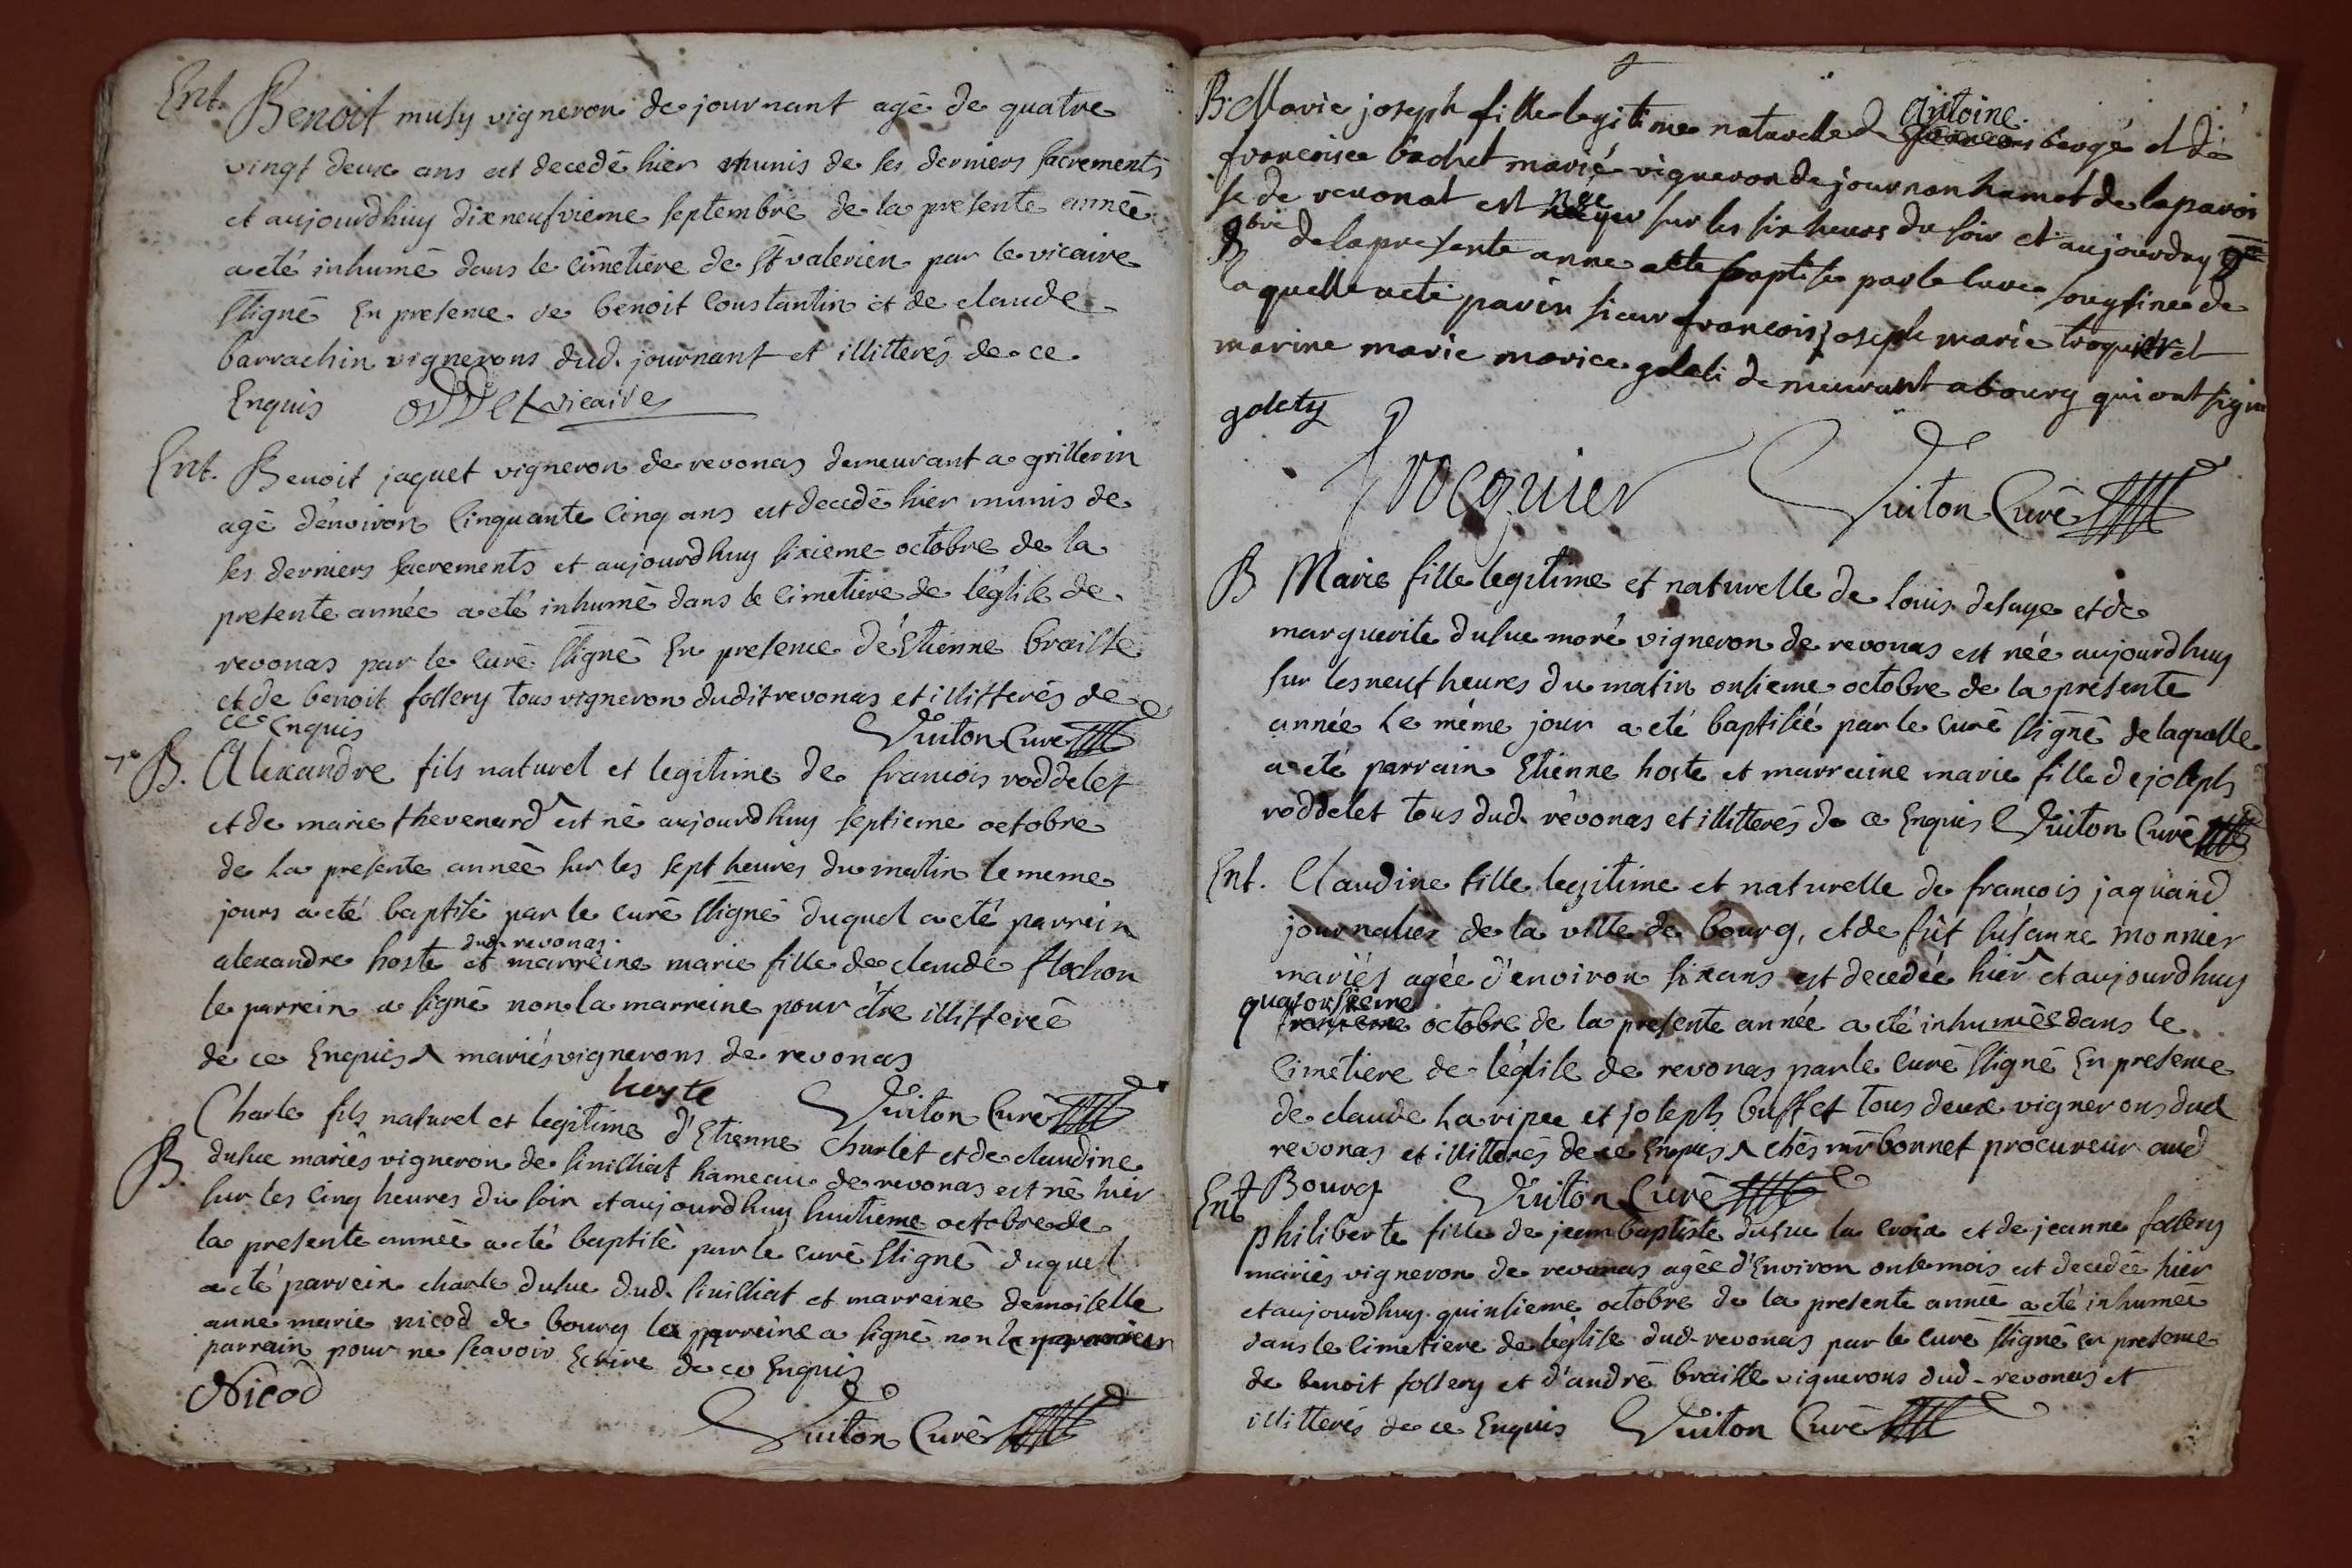 Ent. Benoit musy vigneron de journant agé de quatre
vingt deux ans est decedé hier munis de ses derniers sacrements
et aujourdhuy dixneufvieme septembre de la presente année
a eté inhumé dans le cimetiere de st valerien par le vicaire
ssigné En presence de benoit Constantin et de claude
barrachin vignerons dud. journant et illitterés de ce
Enquis oddet vicaire
Ent. Benoit jaquet vigneron de revonas demeurant a grillerin
agé d'environ cinquante cinq ans est decedé hier munis de
ses derniers sacrements et aujourdhuy sixieme octobre de la
presente année a eté inhumé dans le cimetiere de l'église de
revonas par le curé ssigné En presence d'Etienne braisse
et de benoit follery tous vigneron dudit revonas et illitterés de
ce Enquis Vuiton Curé
B. Alexandre fils naturel et legitime de francois roddelet
et de marie thevenard ^ est né aujourdhuy septieme octobre
de la presente année sur les sept heures du matin le meme
jours a eté baptisé par le curé ssigné duquel a eté parrein
dud. revonas
alexandre hoste et marreine marie fille de claude flochon
le parrein a signé non la marreine pour être illitterée
de ce Enquis ^ mariés vignerons de revonas
Vuiton Curé
hoste
B. Charle fils naturel et legitime d'Etienne Charlet et de claudine
dulue mariés vigneron de sinissiat hameau de revonas est né hier
sur les cinq heures du soir et aujourdhuy huitieme octobre de
la presente année a eté baptisé par le curé ssigné duquel
a eté parrein charle dulue dud. sinissiat et marreine demoiselle
anne marie nicod de bourg la marreine a signé non le
parrain pour ne scavoir Ecrire de ce Enquis
Nicod
Vuiton Curé
Antoine
B. Marie joseph fille legitime naturelle de bergé et de
francoise bachet marié vigneron de journan hamot de la parois
se de revonat est née yer sur les six heures du soir et aujourduy 9me
8bre de la presente anne a ete baptise par le curé sousyine de
laquelle a eté parin sieur francois joseph marie troquier et
marine marie marice goleti demeurant a bourg qui ont signe
golety
Trocquier Vuiton Curé
B Marie fille legitime et naturelle de louis desaye et de
marguerite dulue moré vigneron de revonas est née aujourdhuy
sur les neuf heures du matin onsieme octobre de la presente
année le même jour a eté baptisée par le curé ssigné de laquelle
a eté parrain Etienne hoste et marreine marie fille de joseph
roddelet tous dud. revonas et illitterés de ce Enquis Vuiton Curé
Ent. Claudine fille legitime et naturelle de francois jaquand
journalier de la ville de bourg, et de fût susanne monnier
mariés agée d'environ six ans est decedée hier ^ et aujourdhuy
quatorsieme
octobre de la presente année a eté inhumée dans le
cimetiere de l'église de revonas par le curé ssigné En presence
de claude la ripee et joseph buffet tous deux vignerons dud
revonas et illitterés de ce Enquis ^ chés mr bonnet procureur aud
Bourg Vuiton Curé
Ent philiberte fille de jean baptiste dulue la croix et de jeanne follery
mariés vigneron de revonas agée d'Environ onse mois est decedée hier
et aujourdhuy quinsieme octobre de la presente année a eté inhumée
dans le cimetiere de l'église dud revonas par le curé ssigné en presence
de benoit follery et d'andré braisse vignerons dud revonas et
illitterés de ce Enquis Vuiton Curé